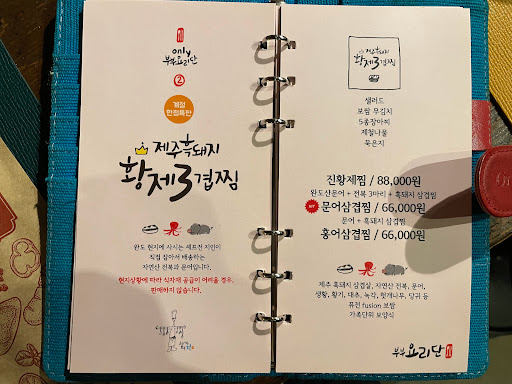 only
부부요리단
2
계절
한정특판
제주흑돼지
황제3겹찜
완도 현지에 사시는 셰프전 지인이
직접 잡아서 배송하는
자연산 전복과 문어입니다.
현지상황에 따라 식자재 공급이 어려울 경우,
판매하지 않습니다.
제주흑돼지
황제3겹찜
샐러드
보쌈 무김치
5종장아찌
제철나물
묵은지
진황제찜 / 88,000원
완도산문어 + 전복 3마리 + 흑돼지 삼겹찜
문어삼겹찜 / 66,000원
문어 + 흑돼지 삼겹찜
홍어삼겹찜 / 66,000원
제주 흑돼지 삼겹살, 자연산 전복, 문어,
생황, 황기, 대추, 녹각, 헛개나무, 당귀 등
퓨전 fusion 보쌈
가족단위 보양식
부부요리단